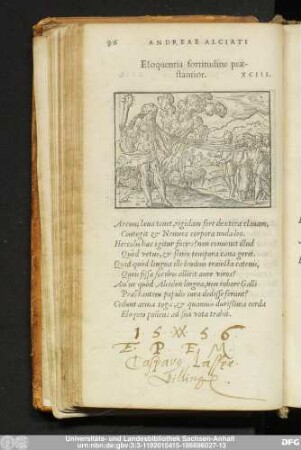 96 ANDREAE ALCIATI
Eloquentia fortitudine præ-
stantior. XCIII.
Arcum læua tenet, rigidam fert dextera clauam,
Contegit & Nemees corpora nuda leo.
Herculis hæc igitur facies? non conuenit illud
Quòd vetus, & senio tempora cana gerit.
Quid quòd lingua illi leuibus traiecta catenis,
Queis fissa faciles allicit aure viros?
An'ne quòd Alciden lingua, non robore Galli
Præstantem populis iura dedisse ferunt?
Cedunt arma togæ, & quamuis durissima corda
Eloquio pollens ad sua vota trahit.
15 56
E. P. E. M
Casparo
Universitäts- und Landesbibliothek Sachsen-Anhalt
urn:nbn:de:gbv:3:3-1192015415-186696027-13
DFG